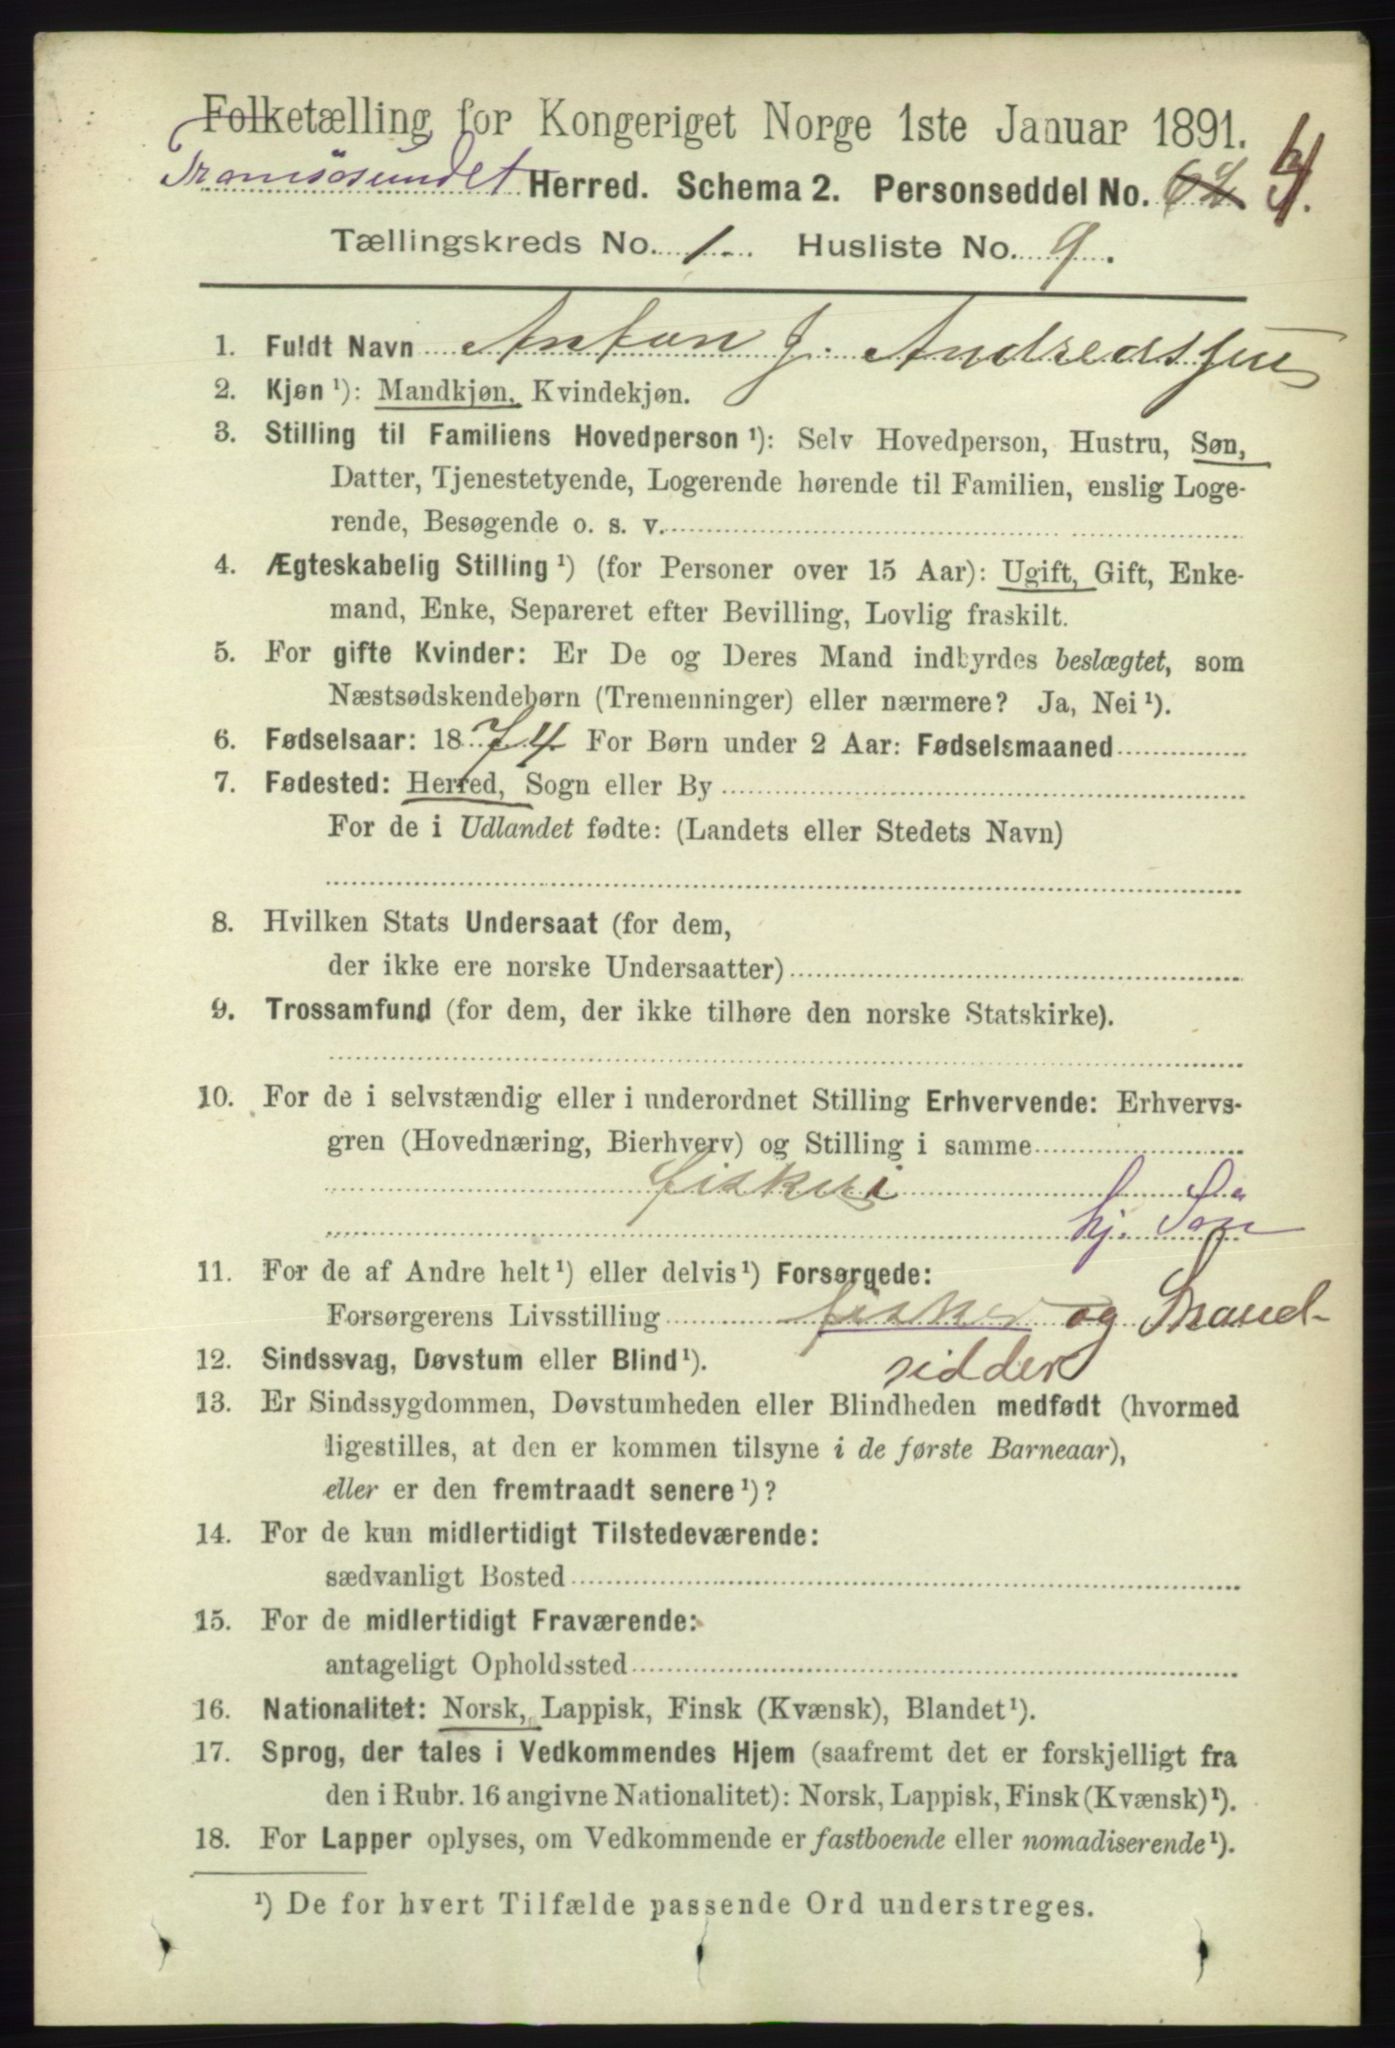 Folketælling for Kongeriget Norge 1ste Januar 1891.
Tromsøsundet Herred. Schema 2. Personseddel No.
Tællingskreds No. 1. Husliste No. 9.
1. Fuldt Navn Anton J. Andreassen
2. Kjøn ¹): Mandkjøn, Kvindekjøn.
3. Stilling til Familiens Hovedperson ¹): Selv Hovedperson, Hustru, Søn,
Datter, Tjenestetyende, Logerende hørende til Familien, enslig Loge-
rende, Besøgende o. s. v.
4. Ægteskabelig Stilling ¹) (for Personer over 15 Aar): Ugift, Gift, Enke-
mand, Enke, Separeret efter Bevilling, Lovlig fraskilt.
5. For gifte Kvinder: Er De og Deres Mand indbyrdes beslægtet, som
Næstsødskendebørn (Tremenninger) eller nærmere? Ja, Nei ¹).
6. Fødselsaar: 1874 For Børn under 2 Aar: Fødselsmaaned
7. Fødested: Herred, Sogn eller By
For de i Udlandet fødte: (Landets eller Stedets Navn)
8. Hvilken Stats Undersaat (for dem,
der ikke ere norske Undersaatter)
9. Trossamfund (for dem, der ikke tilhøre den norske Statskirke).
10. For de i selvstændig eller i underordnet Stilling Erhvervende: Erhvervs-
gren (Hovednæring, Bierhverv) og Stilling i samme
fiskeri
hj. Søn
11. For de af Andre helt ¹) eller delvis ¹) Forsørgede:
Forsørgerens Livsstilling fisker og Strand-
sidder
12. Sindssvag, Døvstum eller Blind ¹).
13. Er Sindssygdommen, Døvstumheden eller Blindheden medfødt (hvormed
ligestilles, at den er kommen tilsyne i de første Barneaar),
eller er den fremtraadt senere ¹)?
14. For de kun midlertidigt Tilstedeværende:
sædvanligt Bosted
15. For de midlertidigt Fraværende:
antageligt Opholdssted
16. Nationalitet: Norsk, Lappisk, Finsk (Kvænsk), Blandet ¹).
17. Sprog, der tales i Vedkommendes Hjem (saafremt det er forskjelligt fra
den i Rubr. 16 angivne Nationalitet): Norsk, Lappisk, Finsk (Kvænsk) ¹).
18. For Lapper oplyses, om Vedkommende er fastboende eller nomadiserende ¹).
¹) De for hvert Tilfælde passende Ord understreges.